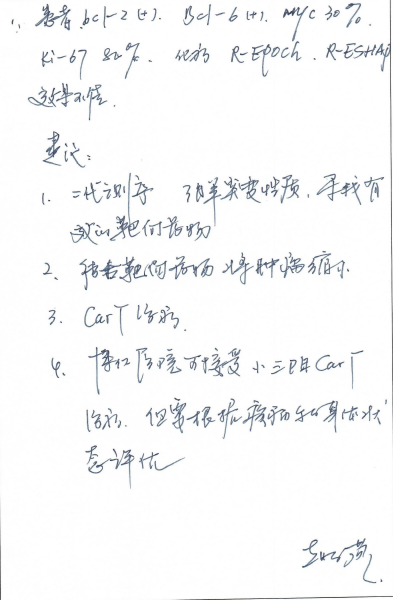 患者 bcl-2 (+). Bcl-6 (+). myc 30%.
Ki-67 80%. 化疗 R-EPOCH. R-ESHAP
效果不佳.
建议:
1. 二代测序 了解突变性质, 寻找有
效的靶向药物
2. 结合靶向药物 将肿瘤缩小
3. CarT 治疗.
4. 博仁医院可接受 小三阳 CarT
治疗. 但要根据疾病和身体状
态评估